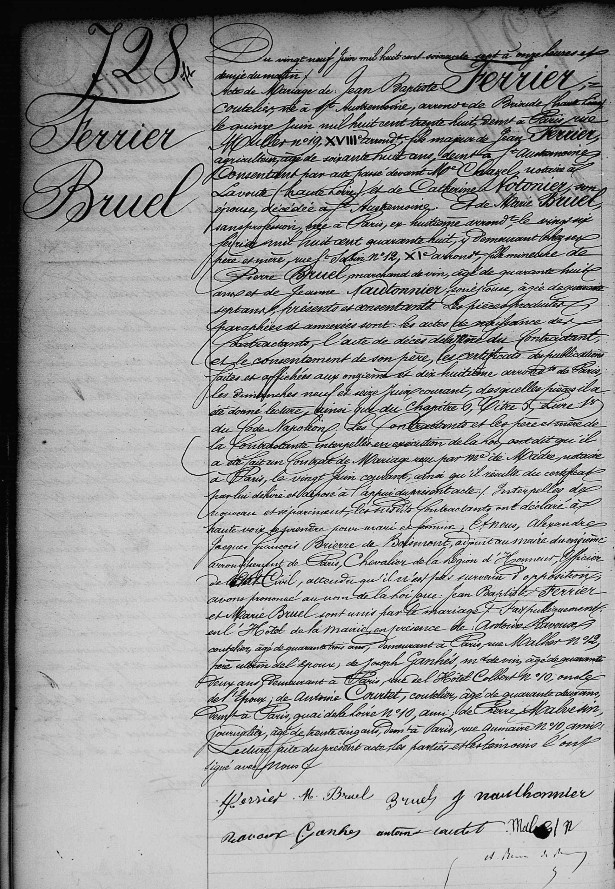 728
Ferrier
Bruel
Du vingt neuf Juin mil huit cent soixante sept à onze heures et
demie du matin
Acte de Mariage de Jean Baptiste Ferrier,
coutelier, né à St Austremoine, arrondt de Brioude (haute Loire)
le quinze Juin mil huit cent trente huit, demt à Paris, rue
n° 19, XVIIIe arrondt, fils majeur de Jean Ferrier
agriculteur, âgé de soixante huit ans, demt à St Austremoine
Consentant par acte passé devant Me Chazel, notaire à
Lavoute (haute Loire) et de Catherine, son
épouse, décédée à St Austremoine. Et de Marie Bruel
sans profession, née à Paris, ex huitième arrondt, le vingt six
mil huit cent quarante huit, y demeurant chez ses
père et mère, rue St Sabin n° 12, XIe arrondt, fille mineure de
Pierre Bruel, marchand de vin, âgé de quarante huit
ans et de Jeanne Nautonnier, son épouse, âgée de quarante
sept ans, présents et consentants. Les pièces produites
paraphées et annexées sont les actes de naissance des
Contractants, l'acte de décès de la mère du Contractant,
et le consentement de son père, les certificats des publications
faites et affichées aux onzième et dix huitième arrondts de Paris,
les dimanches neuf et seize Juin courant, desquelles pièces il a
été donné lecture, ainsi que du Chapitre 6, Titre 5, Livre 1er
du Code Napoléon. Les Contractants et les père et mère de
la Contractante interpellés en exécution de la loi, ont dit qu'il
a été fait un Contrat de Mariage reçu par Me de Madre, notaire
à Paris, le vingt Juin courant, ainsi qu'il résulte du certificat
par lui délivré et déposé à l'appui du présent acte. Interpellés de
nouveau et séparément, les susdits Contractants ont déclaré à
haute voix se prendre pour mari et femme, Et nous, Alexandre
Jacques François Brierre de Boismont, adjoint au maire du onzième
arrondissement de Paris, Chevalier de la Légion d'Honneur, Officier
de l'Etat Civil, attendu qu'il n'est pas survenu d'opposition,
avons prononcé au nom de la loi que Jean Baptiste Ferrier
et Marie Bruel sont unis par le mariage. Fait publiquement
en l'Hôtel de la mairie, en présence de: Antoine Ravoux
coutelier, âgé de quarante trois ans, demeurant à Paris, rue n° 12,
frère utérin de l'époux, de Joseph Ganhes, md de vin, âgé de quarante
deux ans, demeurant à Paris, rue de l'Hôtel Colbert n° 10, oncle
de l'Epoux; de Antoine Courtet, coutelier, âgé de quarante deux ans,
demt à Paris, quai de la Loire n° 10, ami; de Pierre
journalier, âgé de trente cinq ans, demt à Paris, rue n° 10, ami.
Lecture faite du présent acte, les parties et les témoins l'ont
signé avec Nous
Ferrier M. Bruel Bruel J nauthonnier
Ravoux Ganhes antoine courtet